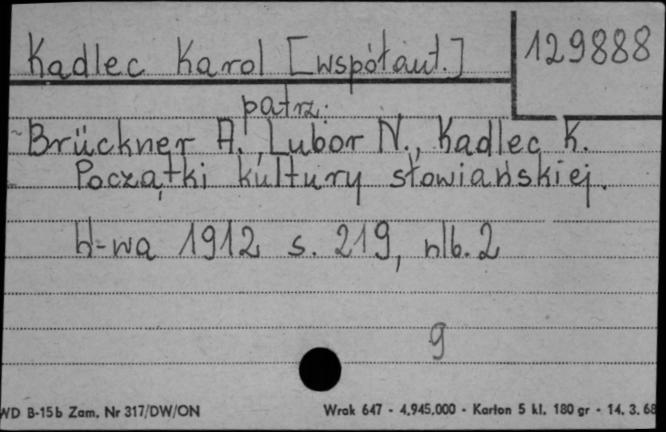 Kadlec Karol [współaut.]
129888
patrz:
Brückner A., Lubor N., Kadlec K.
Początki kultury słowiańskiej.
W-wa 1912 s. 219, nlb. 2
9
WD B-15b Zam. Nr 317/DW/ON
Wrak 647 - 4.945.000 - Karton 5 kl. 180 gr - 14. 3. 68